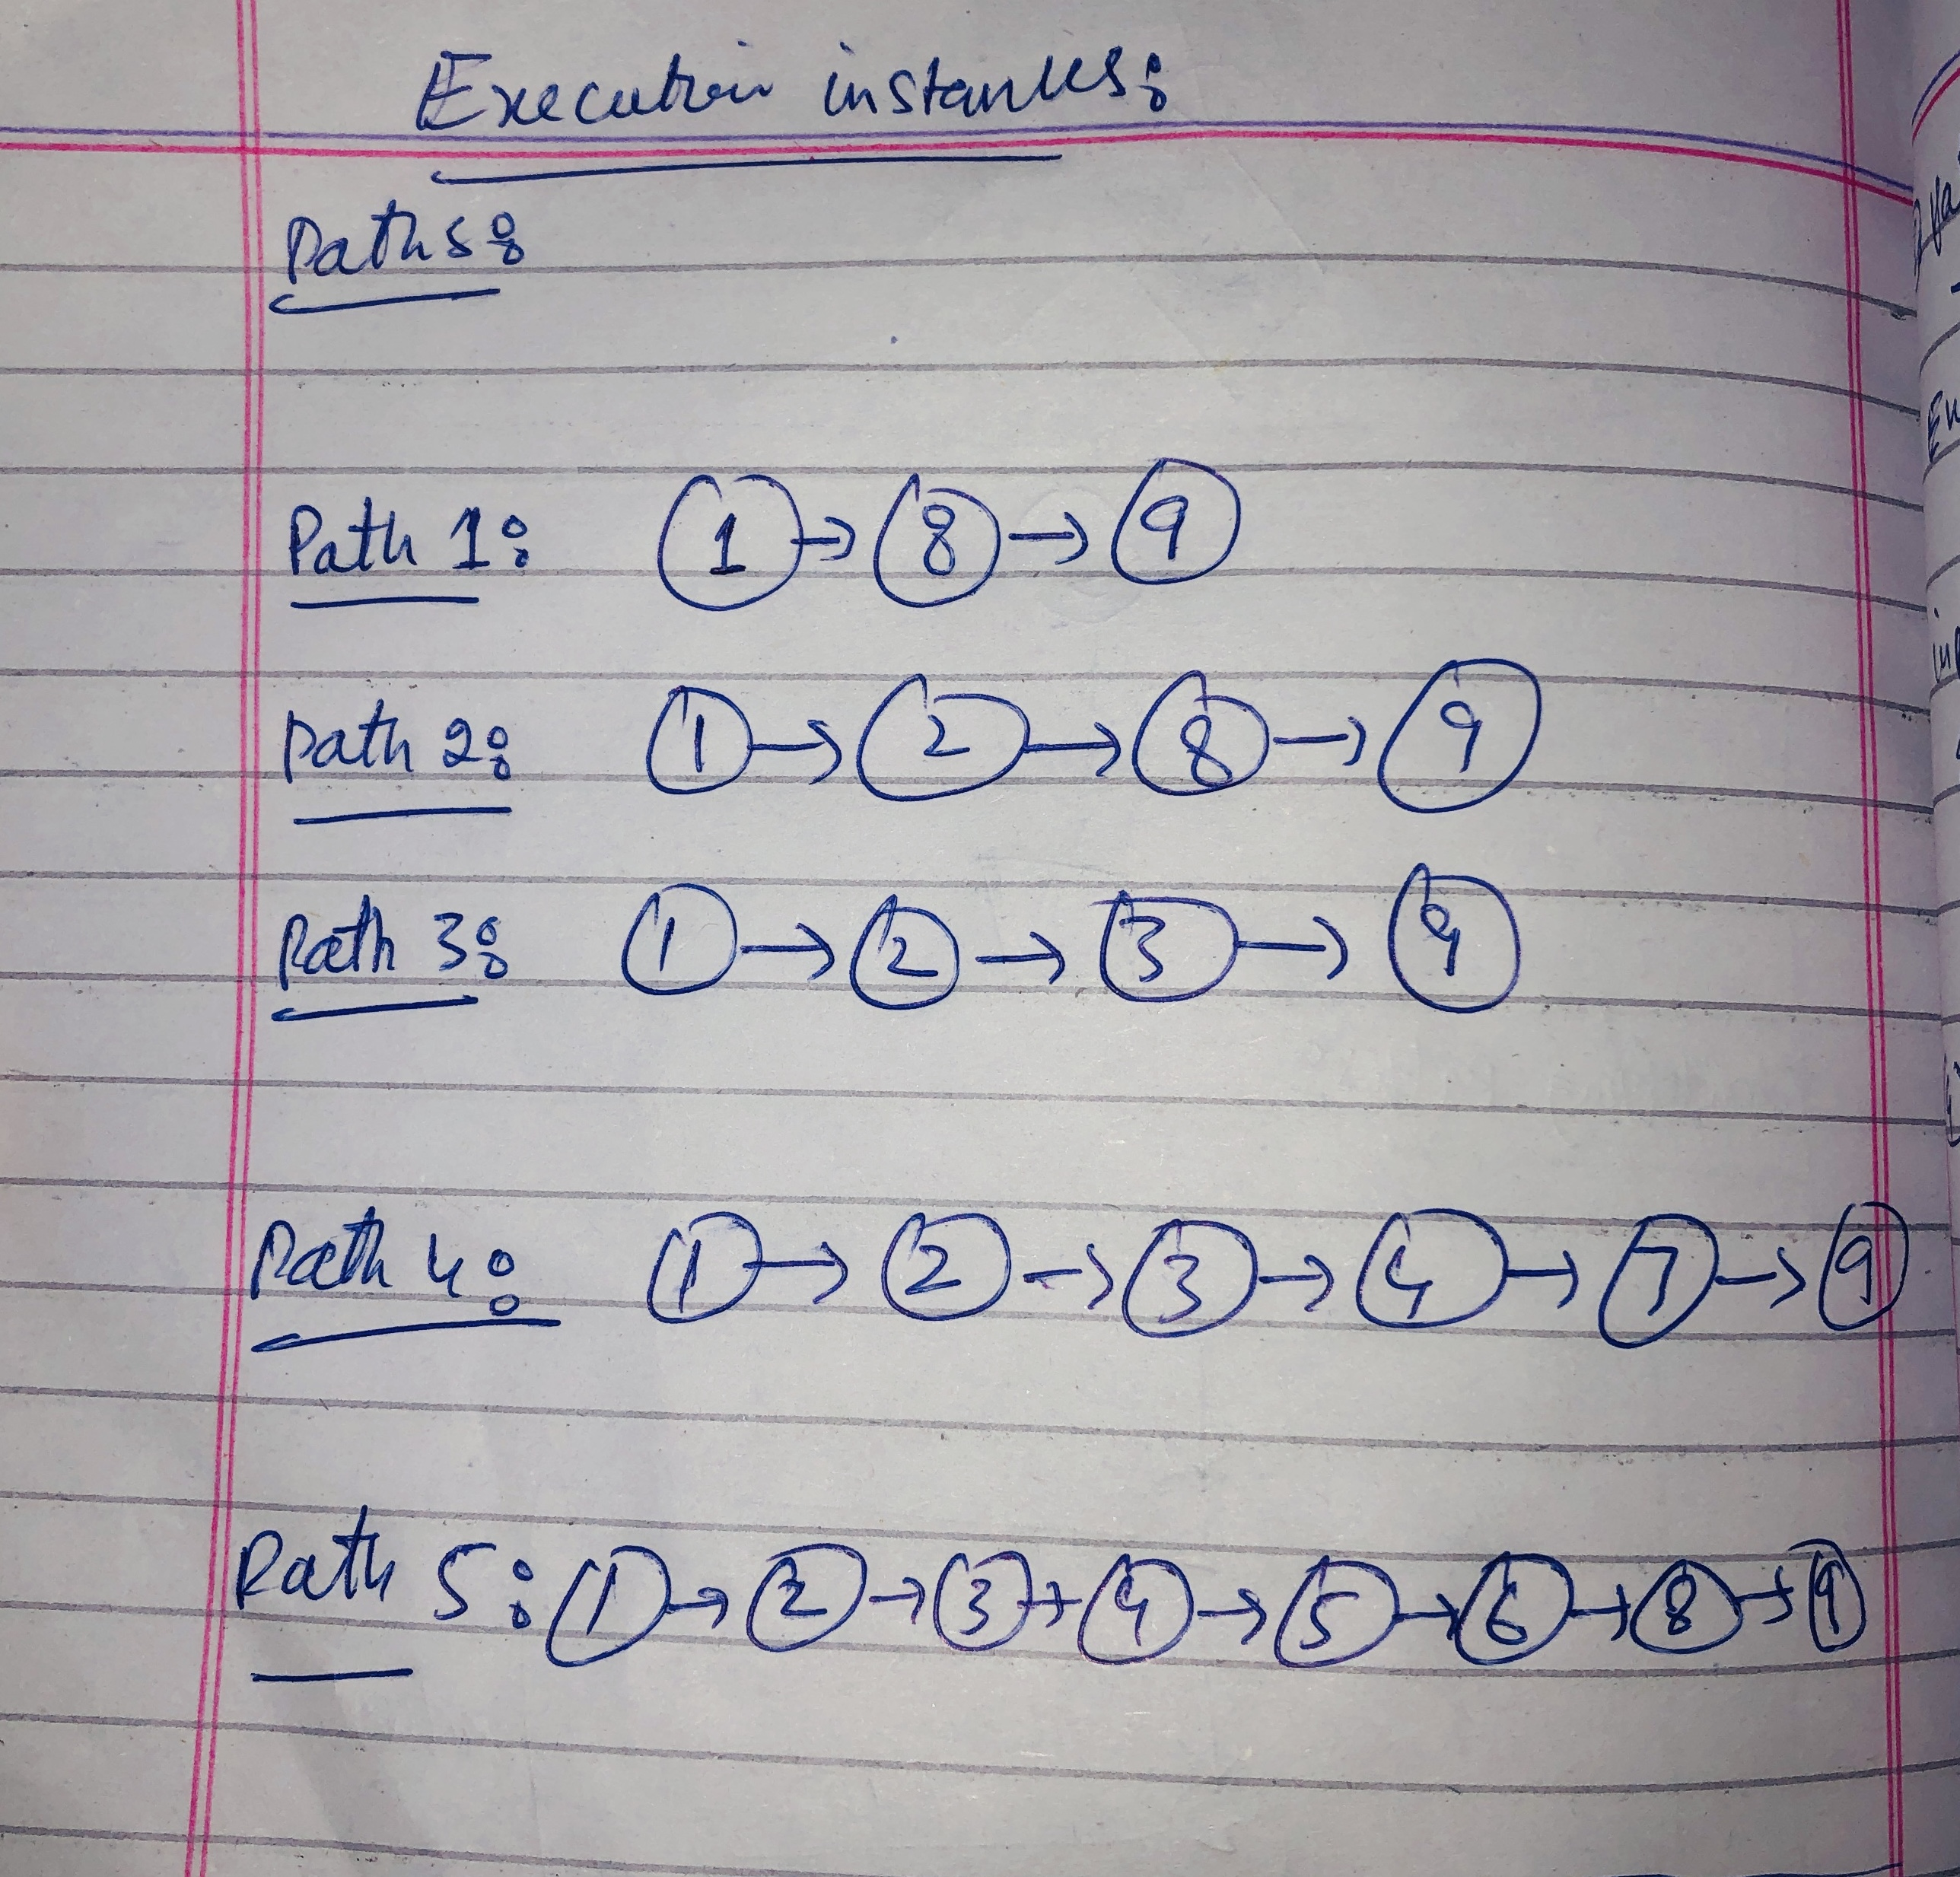 Execution instances:
Paths:
Path 1: 1 → 8 → 9
Path 2: 1 → 2 → 8 → 9
Path 3: 1 → 2 → 3 → 9
Path 4: 1 → 2 → 3 → 4 → 7 → 9
Path 5: 1 → 2 → 3 → 4 → 5 → 6 → 8 → 9